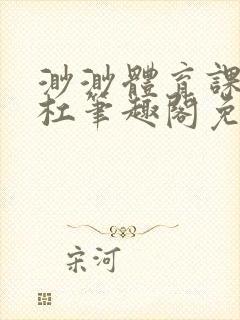 渺渺體育課
杜筆趣閣免
宋河